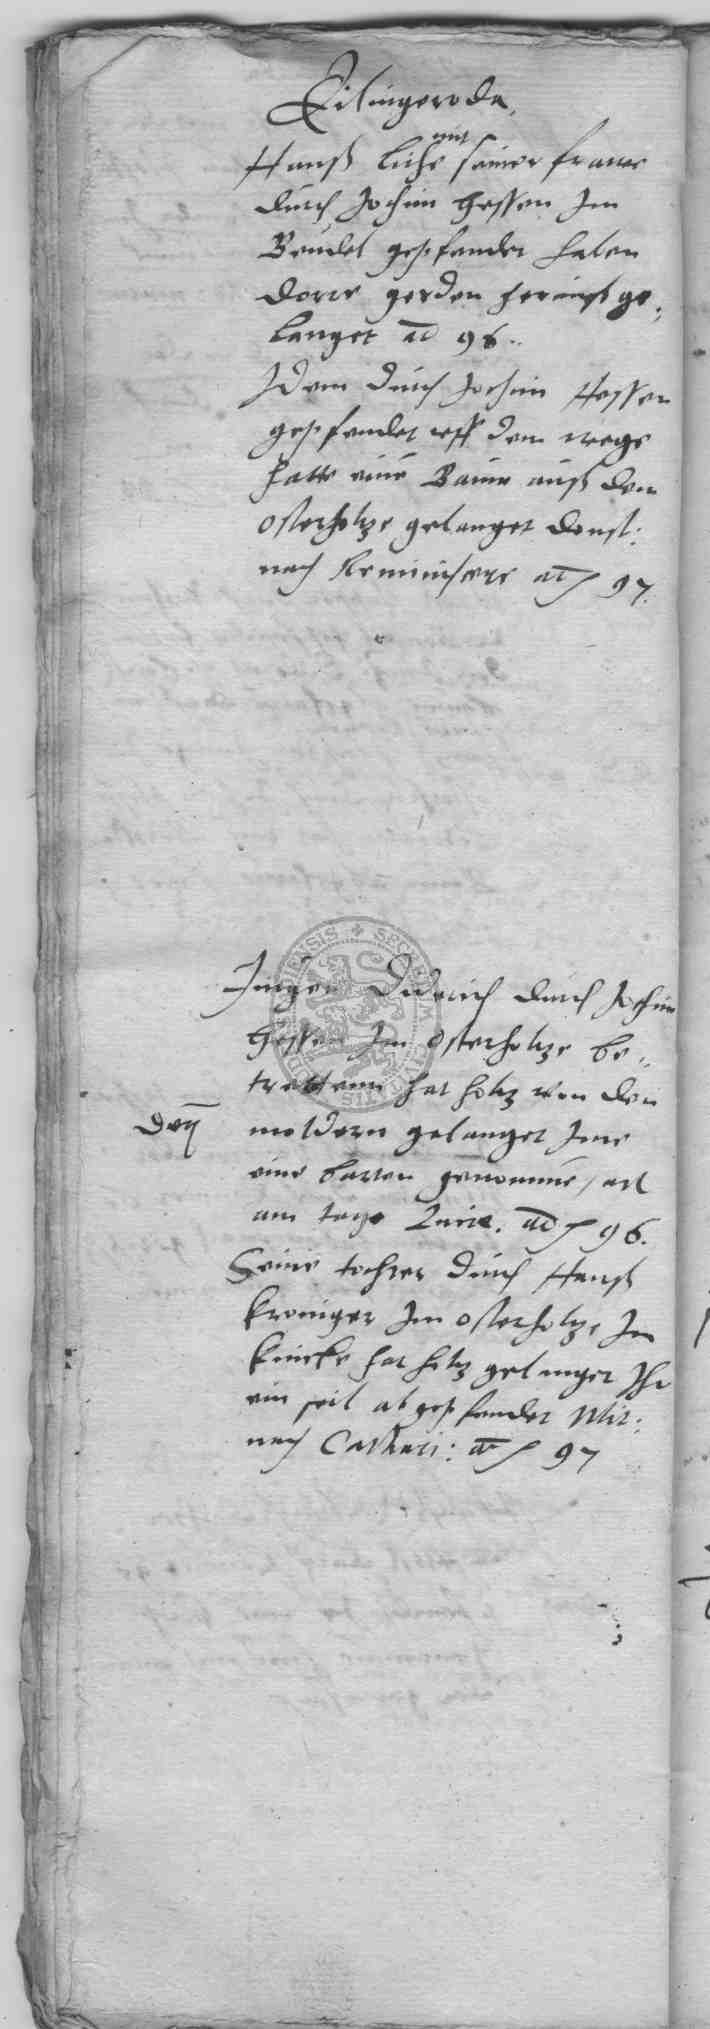 Eilingeroda.
Hanß Liese mit seiner frawe
durch Jochim Hessen Im
Beudel gepfandet haben
dorre gerden herauß ge-
langet ad 96.
Idem durch Jochim Hessen
gepfandet uff dem wege
hatte eine Baum auß dem
osterholtze gelanget Donst:
nach Reminiscere ad 97.
Diderich durch Jochim
Hessen Im Osterholtze be-
trettenn hat holtz von den
moldern gelanget Ime
eine barten genomme, act
am tage Lucie. ad 96.
Seine tochter durch Hanß
kroniger Im osterholtze Im
hat holtz gelanget Ihr
ein seil abgepfandet Mit:
nach Cathari: ad 97